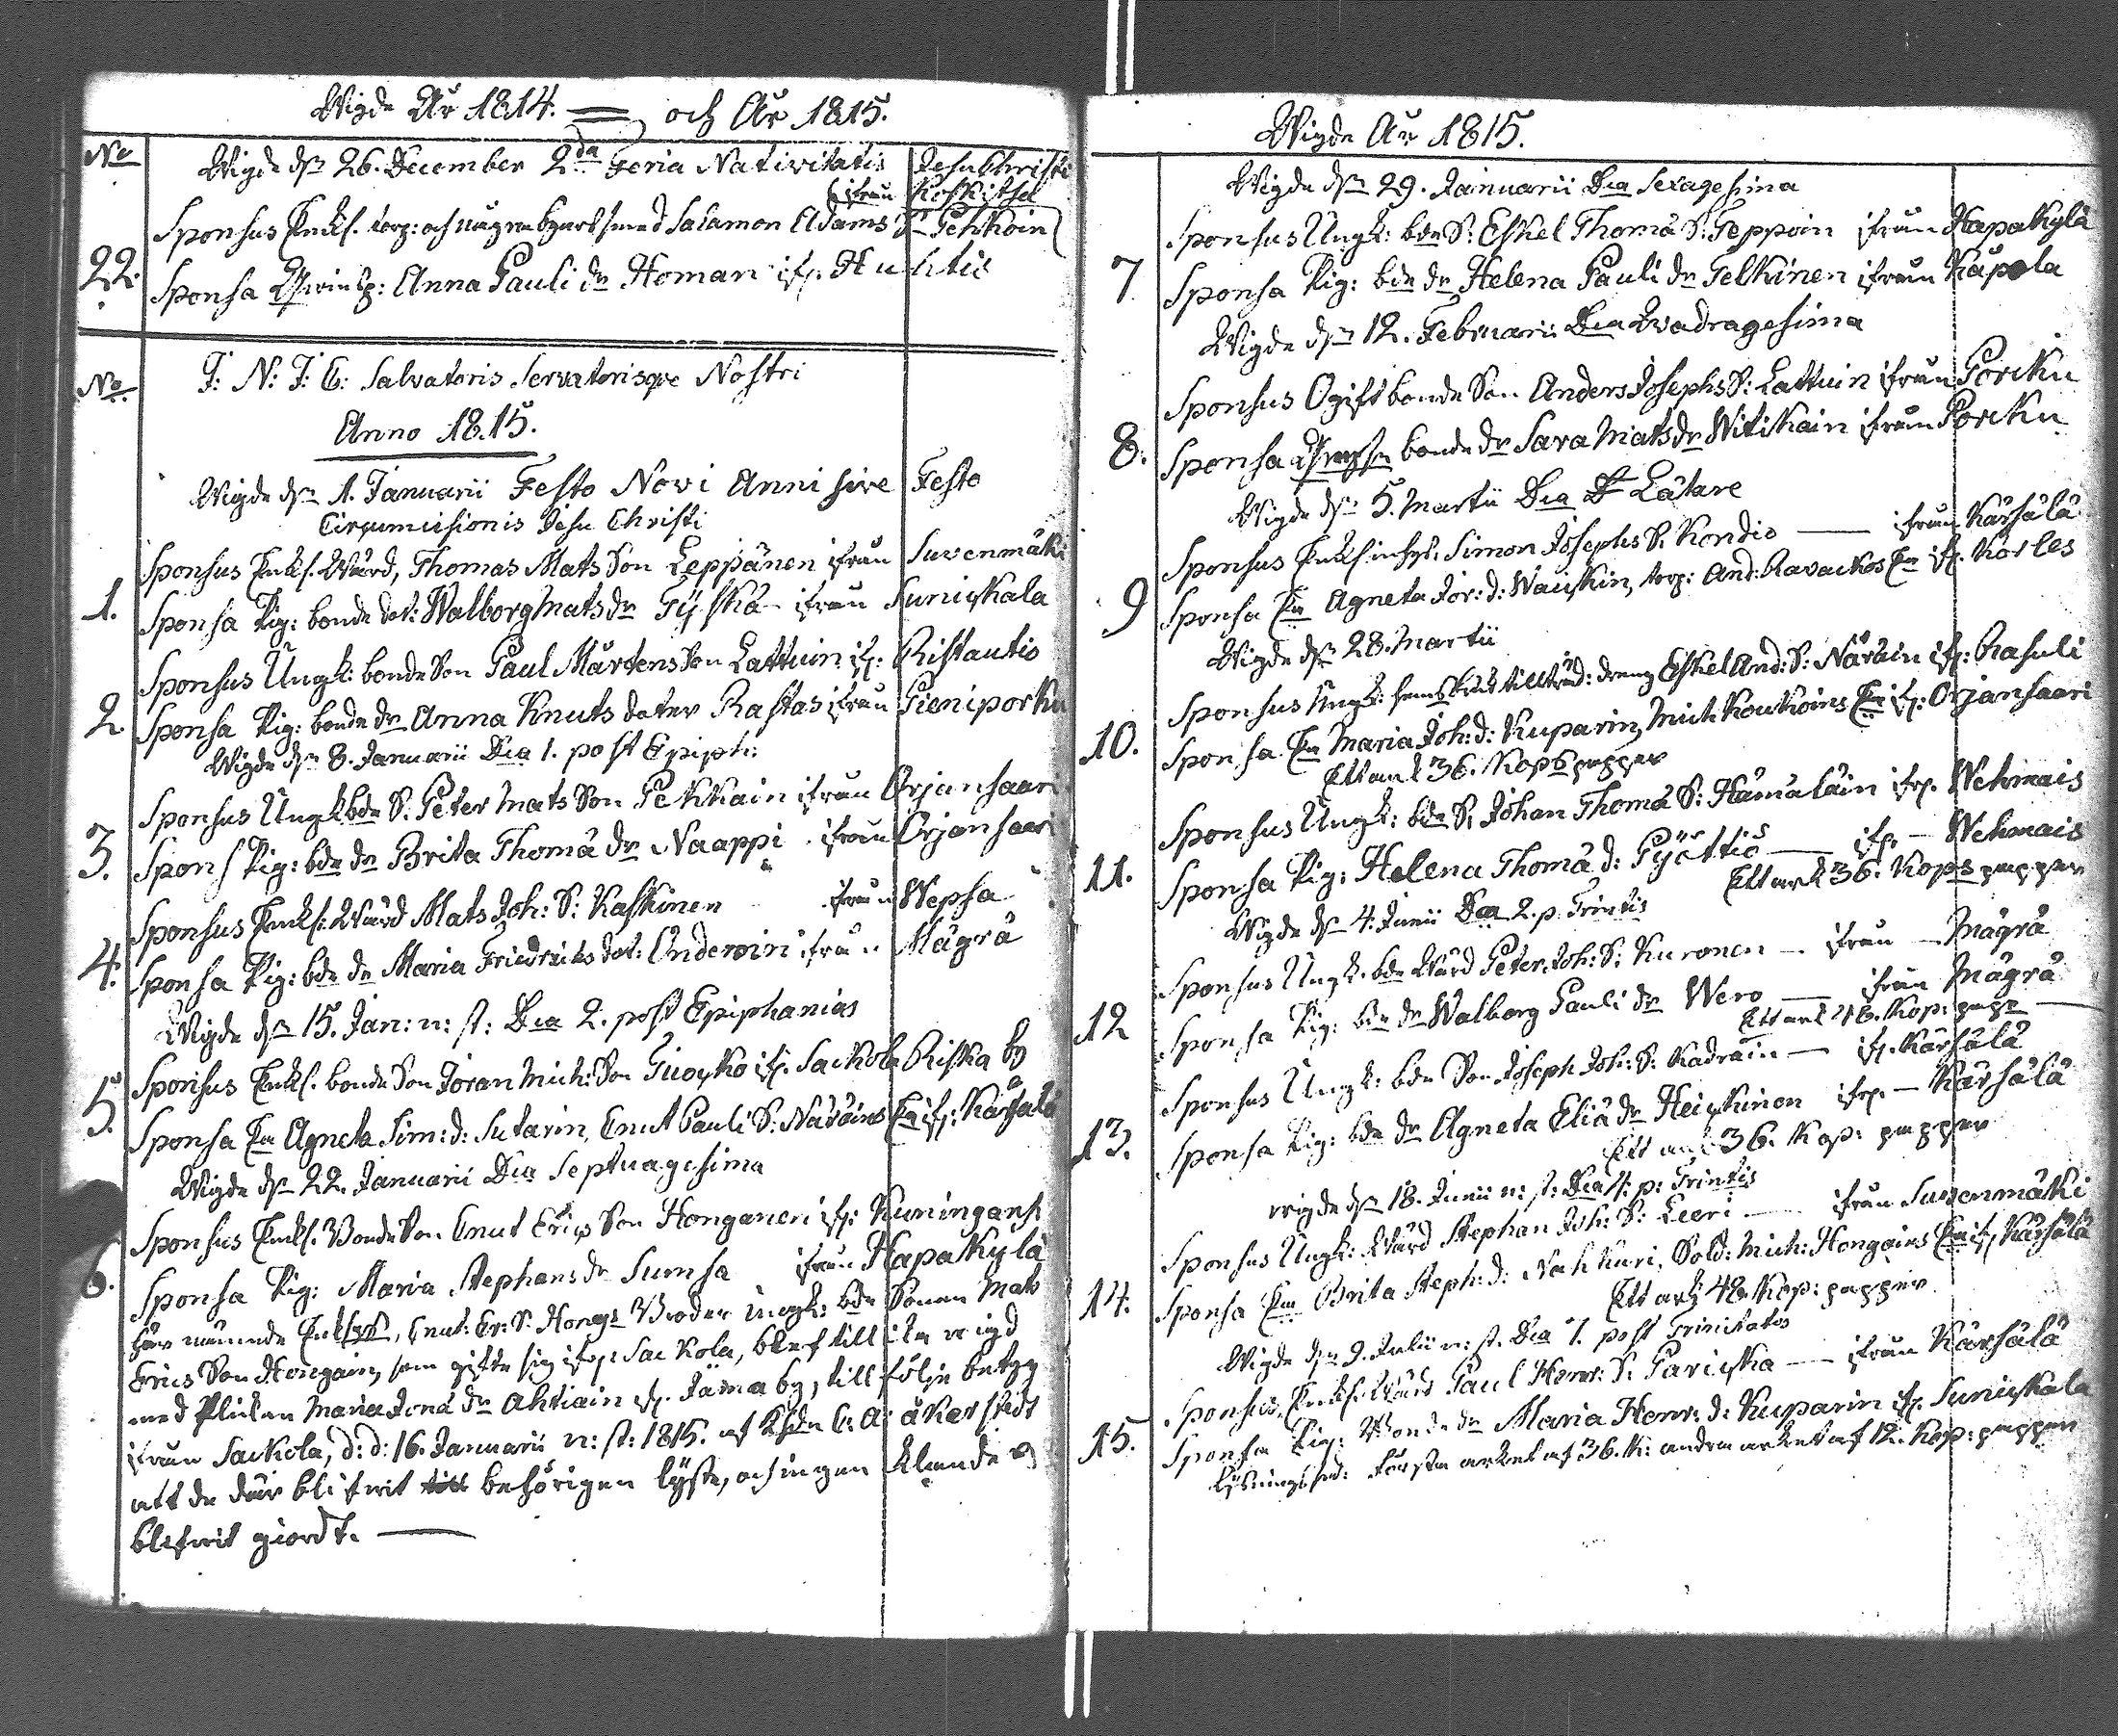 Wigde År 1814. och År 1815.
No
Wigde d. 26. December 2.da Feria Nativitatis Jesu Christi
ifrån Koskitsa
Sponsus Enkl. torp: och Salamon Adams S. Pekkoin
22. Sponsa Anna Pauli dr Homan ifr. Huhtis
No
J: N: J: C: Salvatoris Servatorisque Nostri
Anno 1815.
Wigde d. 1. Januarii Festo Novi Anni sive Festo
Circumcisionis Jesu Christi
Sponsus Enkl. Wärd, Thomas Mats Son Leppänen ifrån Suvenmäki
1. Sponsa Pig: bonde dot: Walborg Mats dr Tyskä ifrån Suniskala
Sponsus Ungk: bonde Son Paul Mårtens Son Lattuin ifr: Ristautio
2. Sponsa Pig: bonde dr Anna Knuts doter Rastas ifrån Pieniporku
Wigde d. 8. Januarii Dca 1. post Epiph:
Sponsus Ungk bde S: Peter Mats Son Pekkain ifrån Orjansaari
3. Spons Pig: bde dr Brita Thomä dr Naappi ifrån Orjansaari
Sponsus Enkl. Wärd Mats Joh: S: Kaskinen ifrån Wepsa
4. Sponsa Pig: bde dr Maria Friedrichs dot: Onderoin ifrån Mägrä
Wigde d. 15. Jan: n: st: Dca 2. post Epiphanias
Sponsus Enkl. bonde Son Jöran Mich: Son Tiosko ifr. Sackola Riska by
5. Sponsa En Agneta Sim: d: Sutarin, Cnut Pauli S: Näräins En ifr: Kärsälä
Wigde d. 22. Januarii Dca Septuagesima
Sponsus Enkl. Bonde Son Cnut Erics Son Honganen ifr: Kuningans
6. Sponsa Pig: Maria Stephans dr Sumsa ifrån Hapakylä
här nämnde Cnut: Er: S: Hong:s Broder ungk: bde Sonen Mats
Erics Son Hongain, som gifte sig ifr: Sackola, blef till wigd
med Pickan Maria Jonä dr Ahtiain ifr. Jäma by, till följe betyg
ifrån Sackola, d: d: 16. Januarii n: st: 1815. af C: A: åkerstedt
att de där blifwit behörigen lyste, och ingen klander
blifwit giordt.
Wigde År 1815.
Wigde d. 29. Januarii Dca Sexagesima
Sponsus Ungk: bde S: Eskel Thomä S: Teppoin ifrån Hapakylä
7 Sponsa Pig: bde dr Helena Pauli dr Pelkinen ifrån Käpola
Wigde d. 12. Februarii Dca Qvadragesima
Sponsus Ogift bonde Son Anders Josephs S: Lattuin ifrån Porcku
8. Sponsa bonde dr Sara Mats dr Witikain ifrån Porcku
Wigde d. 5. Martii Dca Lätare
Sponsus Simon Josephs S. Kondio ifrån Kärsälä
9 Sponsa En Agneta Jör: d: Waiskin, torp: And: Ravackos En ifr. Korles
Wigde d. 28. Martii
Sponsus Ungk: dräng Eskel And: S: Näräin ifr: Rasuli
10. Sponsa En Maria Joh: d: Kuparin, Mich Koukoins En ifr: Orjansaari
Ett ark 36. Kops papper
Sponsus Ungk: bde S. Johan Thomä S: Hämäläin ifr. Wehmais
11. Sponsa Pig: Helena Thomä d: Pyöttiö ifr. Wehmais
Ett ark 36. Kops papper
Wigde d. 4. Junii Dca 2. p. Trinitis
Sponsus Ungk. bde Wärd Peter Joh: S: Kuronen ifrån Mägrä
12 Sponsa Pig: bde dr Walborg Pauli dr Wero ifrån Mägrä
Ett ark Kop: papr
Sponsus Ungk: bde Son Joseph Joh: S: Kadrain ifr. Kärsälä
13. Sponsa Pig: bde dr Agneta Eliä dr Heiskinen ifr. Kärsälä
Ett ark 36. Kop: papper
wigde d. 18. Junii n: st: Dca 4: p: Trinitis
Sponsus Ungk: Wärd Stephan Joh: S: Leeri ifrån Suvenmäki
14. Sponsa En Brita Steph: d: Nahkuri, Sold: Mich: Hongains En ifr. Kärsälä
Ett ark 48. Kop: papper
Wigde d. 9. Julii n: st. Dca 7. post Trinitatis
Sponsus Enkl. Wärd Paul Henr: S. Pariska ifrån Kärsälä
15. Sponsa Pig: Bonde dr Maria Henr: d: Kuparin ifr. Suniskala
Lysningssed: första arket af 36. K: andra arket af 12. Kop: papper